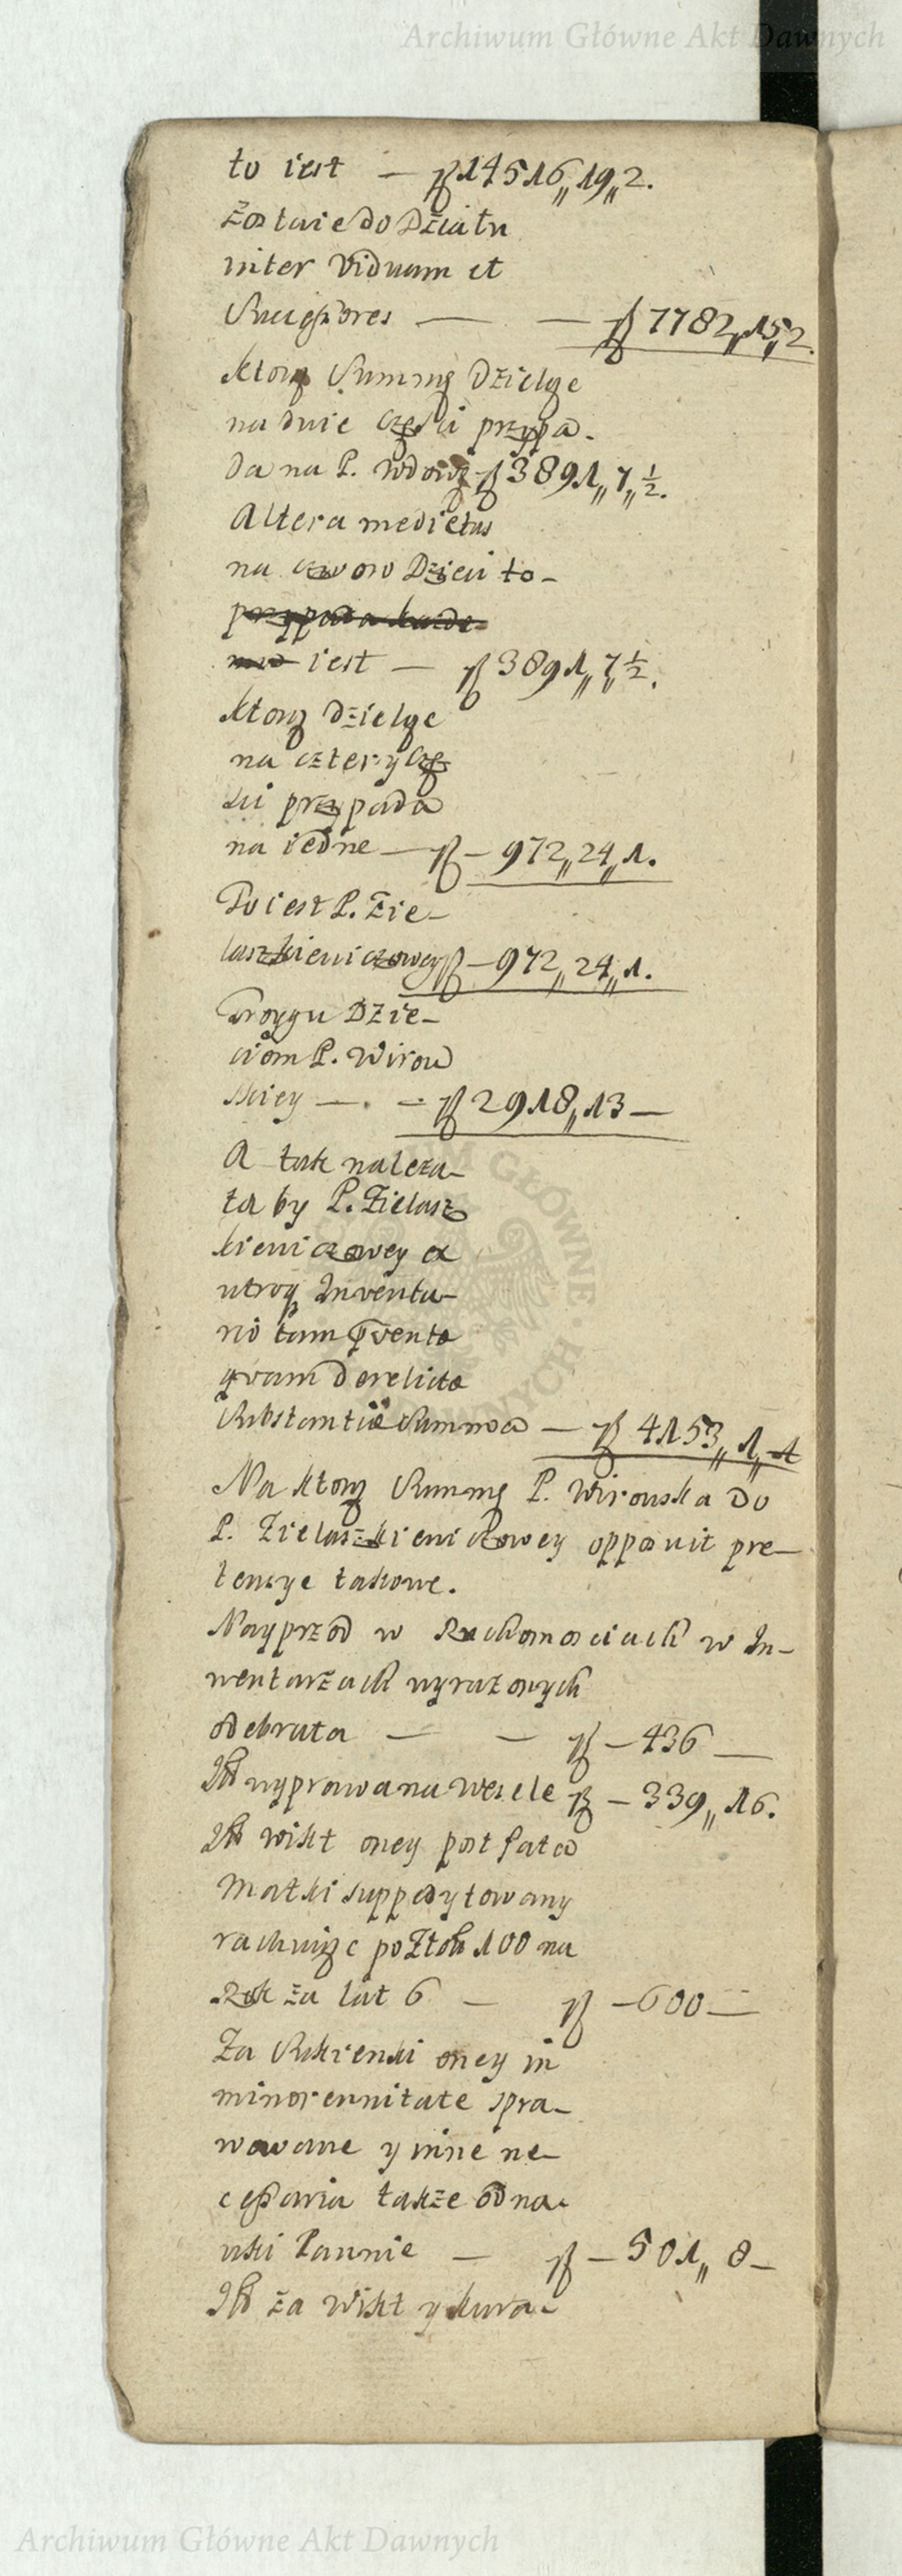 Archiwum Główne Akt Dawnych
to iest — f 14516„19„2.
Zostaie do Działu
inter Viduam et
Successores — — f 7782„15„2.
Ktorą Summę Dzieląc
na dwie Części przypa-
da na P. Wdowę f 3891„7„½.
Altera medietas
na czworo Dzieci to-
przypada każde-
mu iest — f 3891„7½.
Ktorą dzieląc
na cztery Czę
ści przypada
na iedne — f — 972„24„1.
To iest P. Zie-
laszkiewiczowey f — 972„24„1.
Troygu Dzie-
ciom P. Wirow
skiey — . — f 2918„13 —
A tak należa-
ła by P. Zielasz
kiewiczowey ex
utroq Inventa-
rio tam
quam derelictæ
Substantiæ Summa — f 4153„1„1
Na ktorą Summę P. Wirowska do
P. Zielaszkiewiczowey opponit pre-
tensye takowe.
Nayprzod w Ruchomosciach w In-
wentarzach wyrażonych
odebrała — — f — 436 —
It wyprawa na Wesele f — 339„16.
It wikt oney post fata
Matki suppedytowany
rachuiąc po Złotch 100 na
Rok za lat 6 — f — 600 —
Za Sukienki oney in
minorennitate spra-
wowane y inne ne-
cessaria także od na-
uki Pannie — f — 501„8 —
It za Wikt y kura-
GŁÓWNE
DAWNYCH
Archiwum Główne Akt Dawnych